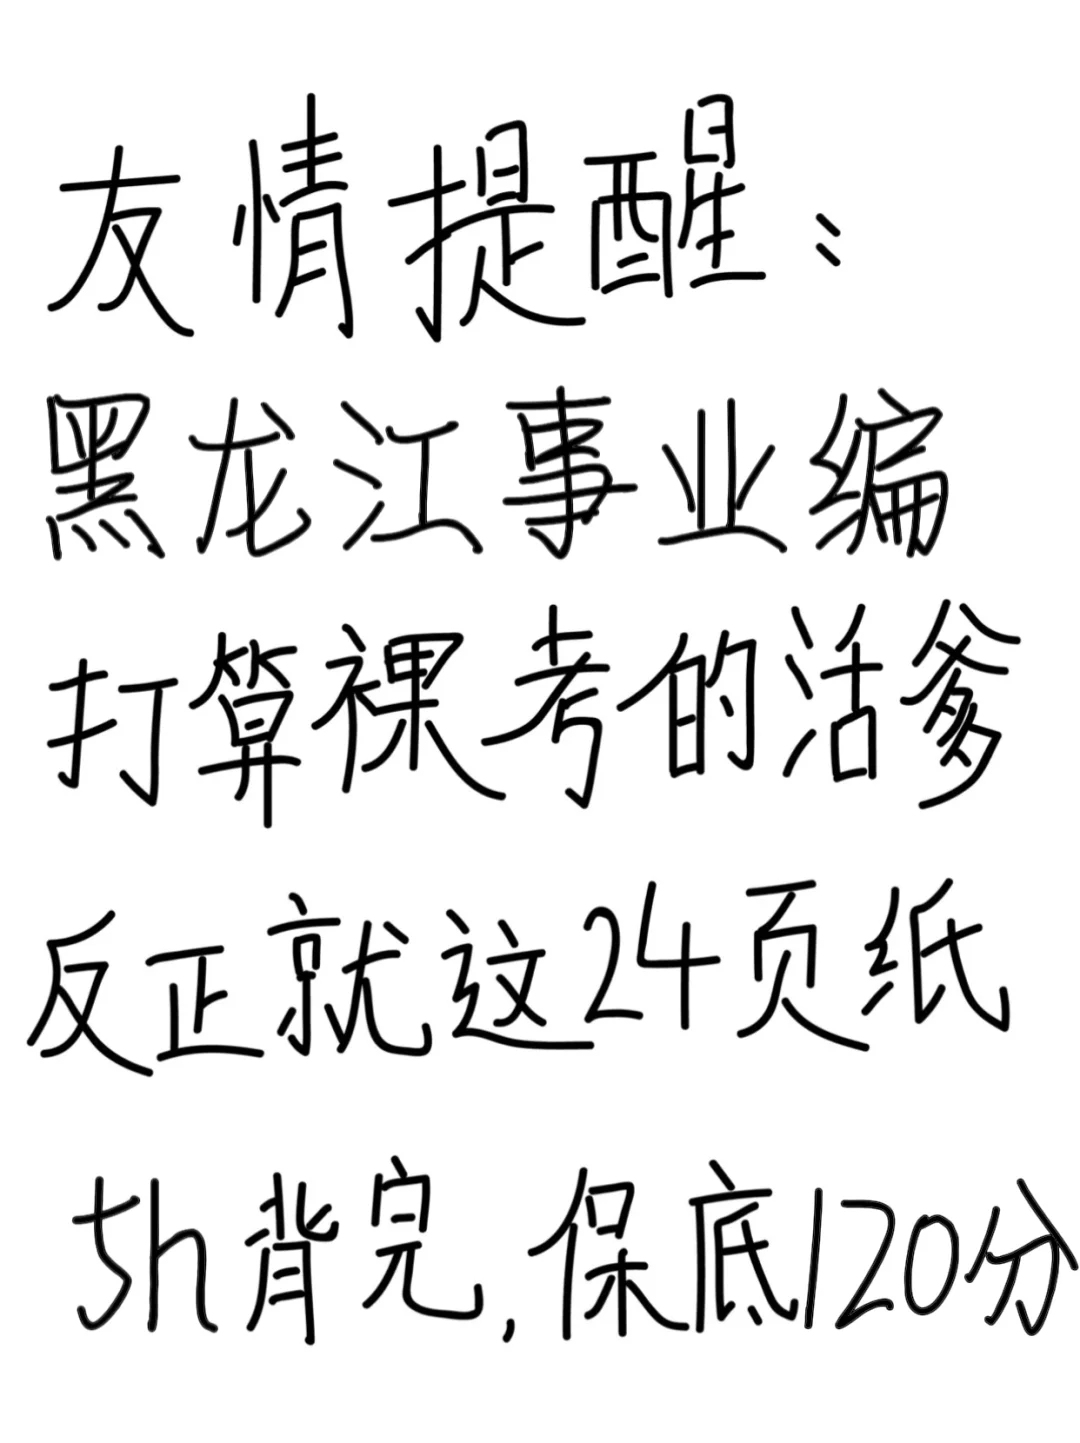 友情提醒：
黑龙江事业编
打算裸考的活爹
反正就这24页纸
5h背完，保底120分